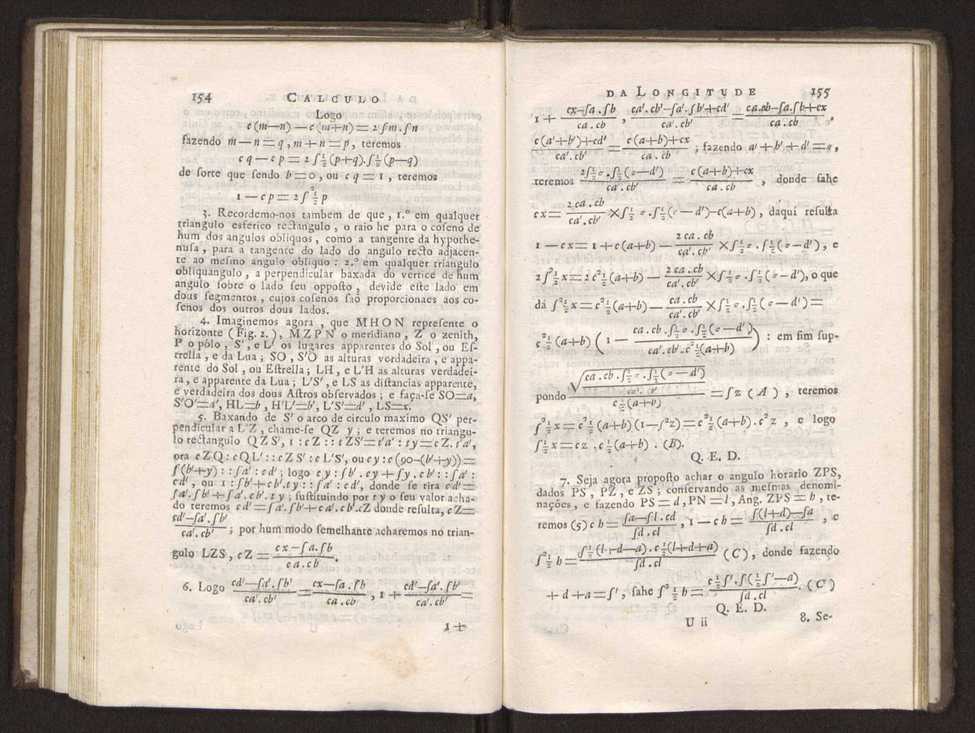 154 CALCULO
Logo
c (m—n) — c (m+n) = 2 ſm.ſn
fazendo m — n = q, m + n = p, teremos
c q — c p = 2 ſ½ (p+q).ſ½ (p—q)
de ſorte que ſendo b = 0, ou c q = 1, teremos
1 — c p = 2 ſ²½ p
3. Recordemo-nos tambem de que, 1.º em qualquer
triangulo esferico rectangulo, o raio he para o coſeno de
hum dos angulos obliquos, como a tangente da hypothe-
nuſa, para a tangente do lado do angulo recto adjacen-
te ao meſmo angulo obliquo : 2.º em qualquer triangulo
obliquangulo, a perpendicular baxada do vertice de hum
angulo ſobre o lado ſeu oppoſto, devide eſte lado em
dous ſegmentos, cujos coſenos ſaõ proporcionaes aos co-
ſenos dos outros dous lados.
4. Imaginemos agora, que MHON repreſente o
horizonte (Fig. 2.), MZPN o meridiano, Z o zenith,
P o pólo, S', e L' os lugares apparentes do Sol, ou Eſ-
trella, e da Lua; SO, S'O as alturas verdadeira, e appa-
rente do Sol, ou Eſtrella; LH, e L'H as alturas verdadei-
ra, e apparente da Lua; L'S', e LS as diſtancias apparente,
e verdadeira dos dous Aſtros obſervados; e faça-ſe SO=a,
S'O=a', HL=b, H'L'=b', L'S'=d', LS=x.
5. Baxando de S' o arco de circulo maximo QS' per-
pendicular a L'Z, chame-ſe QZ y; e teremos no triangu-
lo rectangulo QZS', 1 : cZ :: tZS'=t'a' : ty=cZ.t'a',
ora cZQ : cQL' :: cZS' : cL'S', ou cy : c(90—(b'+y))=
ſ(b'+y) :: ſa' : cd'; logo cy : ſb'.cy+ſy.cb' :: ſa' :
cd', ou 1 : ſb'+cb'.ty :: ſa' : cd', donde ſe tira cd'=
ſa'.ſb'+ſa'.cb'.ty; ſuſtituindo por ty o ſeu valor acha-
do teremos cd'=ſa'.ſb'+ca'.cb'.cZ donde reſulta, cZ=
(cd'—ſa'.ſb')/(ca'.cb'); por hum modo ſemelhante acharemos no trian-
gulo LZS, cZ = (cx—ſa.ſb)/(ca.cb).
6. Logo (cd'—ſa'.ſb')/(ca'.cb') = (cx—ſa.ſb)/(ca.cb), 1 + (cd'—ſa'.ſb')/(ca'.cb') =
1+
DA LONGITUDE 155
1 + (cx—ſa.ſb)/(ca.cb), (ca'.cb'—ſa'.ſb'+cd')/(ca'.cb') = (ca.cb—ſa.ſb+cx)/(ca.cb),
(c(a'+b')+cd')/(ca'.cb') = (c(a+b)+cx)/(ca.cb); fazendo a'+b'+d'=e,
teremos (2ſ½e.ſ½(e—d'))/(ca'.cb') = (c(a+b)+cx)/(ca.cb), donde ſahe
cx = (2ca.cb)/(ca'.cb') × ſ½e.ſ½(e—d')—c(a+b), daqui reſulta
1 — cx = 1 + c(a+b) — (2ca.cb)/(ca'.cb') × ſ½e.ſ½(e—d'), e
2ſ²½x = 2c²½(a+b) — (2ca.cb)/(ca'.cb') × ſ½e.ſ½(e—d'), o que
dá ſ²½x = c²½(a+b) — (ca.cb)/(ca'.cb') × ſ½e.ſ½(e—d') =
c²½(a+b) (1 — (ca.cb.ſ½e.ſ½(e—d'))/(ca'.cb'.c²½(a+b))) : em fim ſup-
pondo √((ca.cb.ſ½e.ſ½(e—d'))/(ca'.cb'))/(c½(a+b)) = ſz (A), teremos
ſ²½x = c²½(a+b)(1—ſ²z) = c²½(a+b).c²z, e logo
ſ½x = cz.c½(a+b). (B).
Q. E. D.
7. Seja agora propoſto achar o angulo horario ZPS,
dados PS, PZ, e ZS; conſervando as meſmas denomi-
nações, e fazendo PS = d, PN = l, Ang. ZPS = h, te-
remos (5) ch = (ſa—ſl.cd)/(ſd.cl), 1 — ch = (ſ(l+d)—ſa)/(ſd.cl), e
ſ²½h = (ſ½(l+d—a).c½(l+d+a))/(ſd.cl) (C), donde fazendo
+ d + a = ſ', ſahe ſ²½h = (c½ſ'.ſ(½ſ'—a))/(ſd.cl). (C')
Q. E. D.
U ii 8. Se-